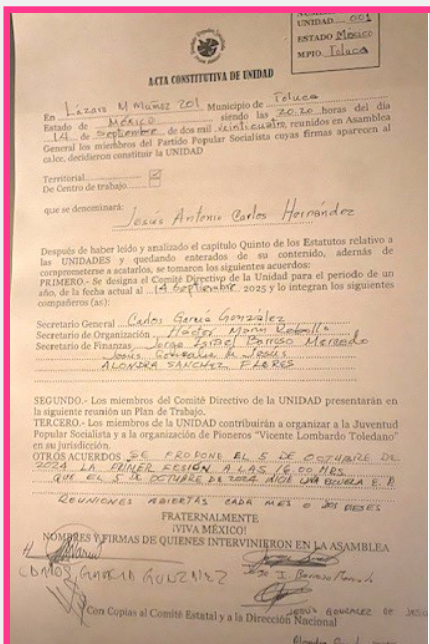 UNIDAD 001
ESTADO Mexico
MPIO. Toluca
ACTA CONSTITUTIVA DE UNIDAD
En Lázaro M Muñoz 201 Municipio de Toluca
Estado de México siendo las 20:20 horas del día
14 de Septiembre de dos mil veinticuatro, reunidos en Asamblea
General los miembros del Partido Popular Socialista cuyas firmas aparecen al
calce, decidieron constituir la UNIDAD
Territorial
De Centro de trabajo
que se denominará:
Jesús Antonio Carlos Hernández
Después de haber leído y analizado el capítulo Quinto de los Estatutos relativo a
las UNIDADES y quedando enterados de su contenido, además de
comprometerse a acatarlos, se tomaron los siguientes acuerdos:
PRIMERO.- Se designa el Comité Directivo de la Unidad para el periodo de un
año, de la fecha actual al 14 Septiembre 2025 y lo integran los siguientes
compañeros (as):
Secretario General Carlos García González
Secretario de Organización Héctor Marín Rebollo
Secretario de Finanzas Jorge Israel Barroso Mercado
Jesús González de Jesús
ALONDRA SANCHEZ FLORES
SEGUNDO.- Los miembros del Comité Directivo de la UNIDAD presentarán en
la siguiente reunión un Plan de Trabajo.
TERCERO.- Los miembros de la UNIDAD contribuirán a organizar a la Juventud
Popular Socialista y a la organización de Pioneros "Vicente Lombardo Toledano"
en su jurisdicción.
OTROS ACUERDOS SE PROPONE EL 5 DE OCTUBRE DE
2024 LA PRIMER SESIÓN A LAS 16:00 HRS
QUE EL 5 DE OCTUBRE DE 2024 INICIE UNA ESCUELA
REUNIONES ABIERTAS CADA MES O DOS MESES
FRATERNALMENTE
¡VIVA MÉXICO!
NOMBRES Y FIRMAS DE QUIENES INTERVINIERON EN LA ASAMBLEA
CARLOS GARCIA GONZALEZ
Jorge I. Barroso Mercado
JESÚS GONZALEZ DE
Con Copias al Comité Estatal y a la Dirección Nacional